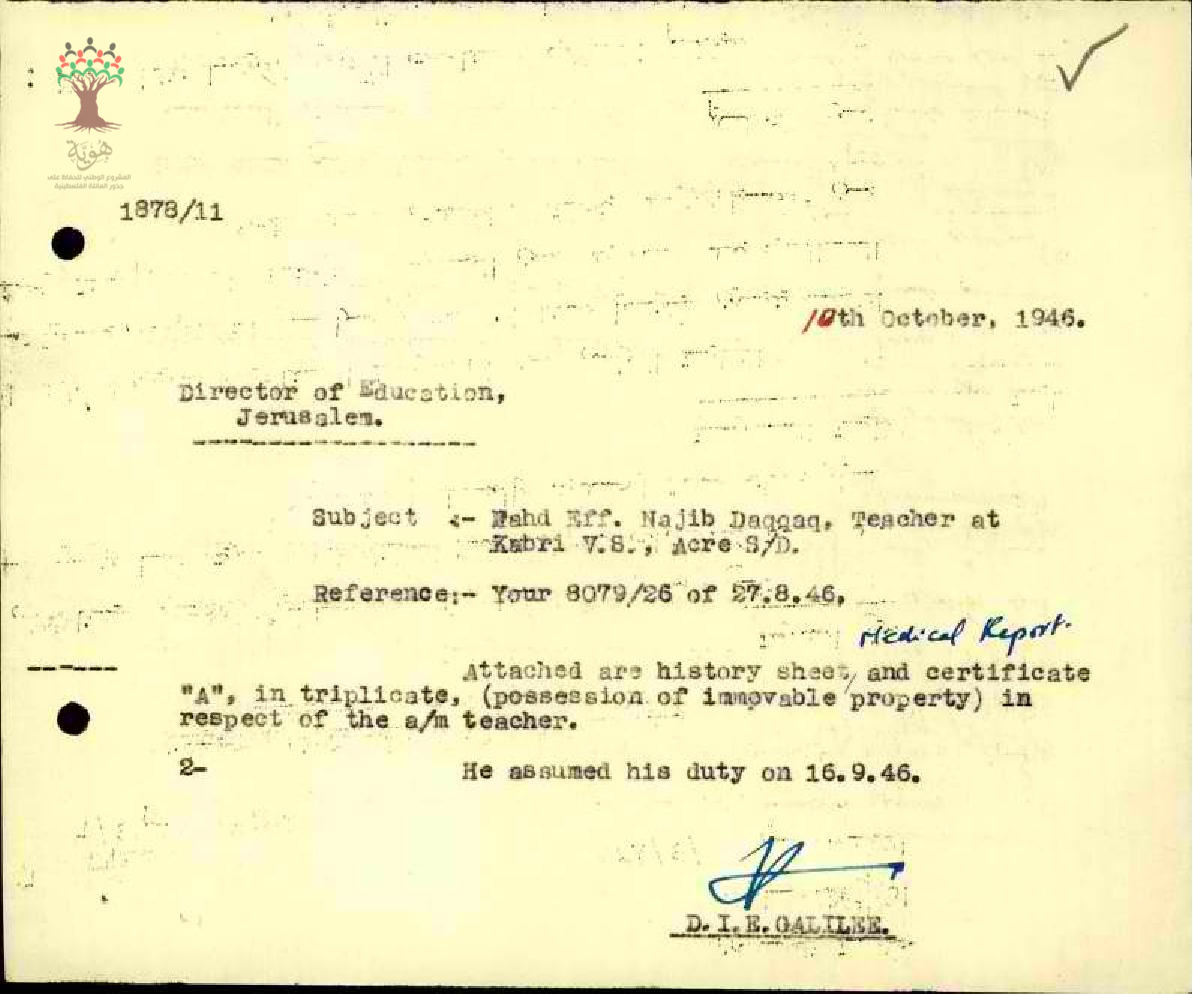 هوية
المشروع الوطني للحفاظ على
جذور العائلة الفلسطينية
1878/11
10th October, 1946.
Director of Education,
Jerusalem.
Subject :- Fahd Eff. Najib Daqqaq, Teacher at
Kabri V.S., Acre S/D.
Reference:- Your 8079/26 of 27.8.46.
Medical Report.
Attached are history sheet, and certificate
"A", in triplicate, (possession of immovable property) in
respect of the a/m teacher.
2- He assumed his duty on 16.9.46.
D.I.E.GALILEE.